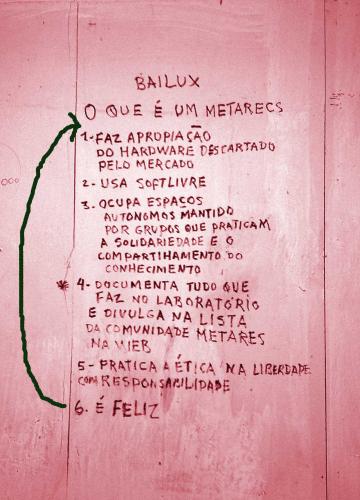 BAILUX
O QUE É UM METARECS
1-FAZ APROPIAÇÃO
DO HARDWARE DESCARTADO
PELO MERCADO
2- USA SOFTLIVRE
3. OCUPA ESPAÇOS
AUTONOMOS MANTIDO
POR GRUPOS QUE PRATICAM
A SOLIDARIEDADE E O
COMPARTILHAMENTO DO
CONHECIMENTO
* 4- DOCUMENTA TUDO QUE
FAZ NO LABORATÓRIO
E DIVULGA NA LISTA
DA COMUNIDADE METARES
NA WEB
5- PRATICA A ÉTICA NA LIBERDADE
COM RESPONSABILIDADE
6. É FELIZ